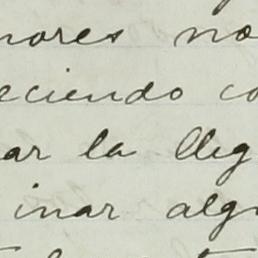 nores no
eciendo co
ar la lleg
inar alg